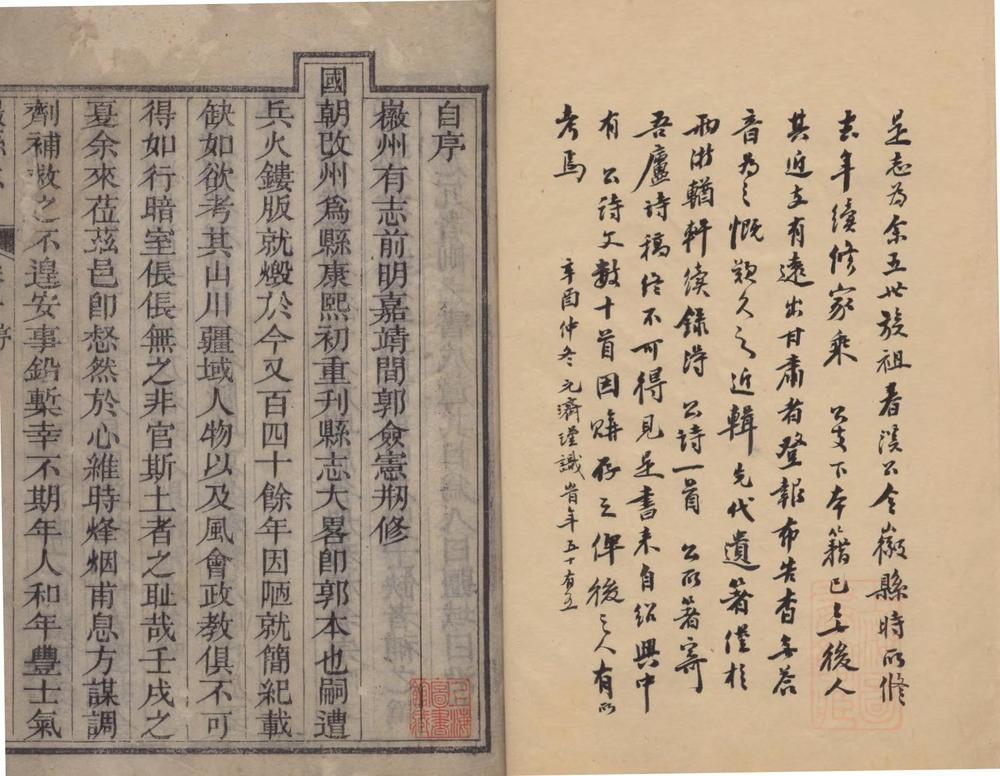 是志為余五世族祖春溪公令徽縣時所修
去年續修家乘 公支下本籍已無後人
其近支有遠出甘肅者登報布告杳無答
音為之慨歎久之近輯先代遺著僅於
兩浙輶軒續錄得 公詩一首 公所著寄
吾廬詩稿終不可得見是書來自紹興中
有 公詩文數十首因購存之俾後之人有所
考焉
辛酉仲冬元濟謹識 時年五十有五
自序
徽州有志前明嘉靖間郭僉憲剏修
國朝改州爲縣康熙初重刊縣志大畧卽郭本也嗣遭
兵火鏤版就燬於今又百四十餘年因陋就簡紀載
缺如欲考其山川疆域人物以及風會政教俱不可
得如行暗室倀倀無之非官斯土者之耻哉壬戌之
夏余來莅茲邑卽愁然於心維時烽烟甫息方謀調
劑補救之不遑安事鉛槧幸不期年人和年豐士氣